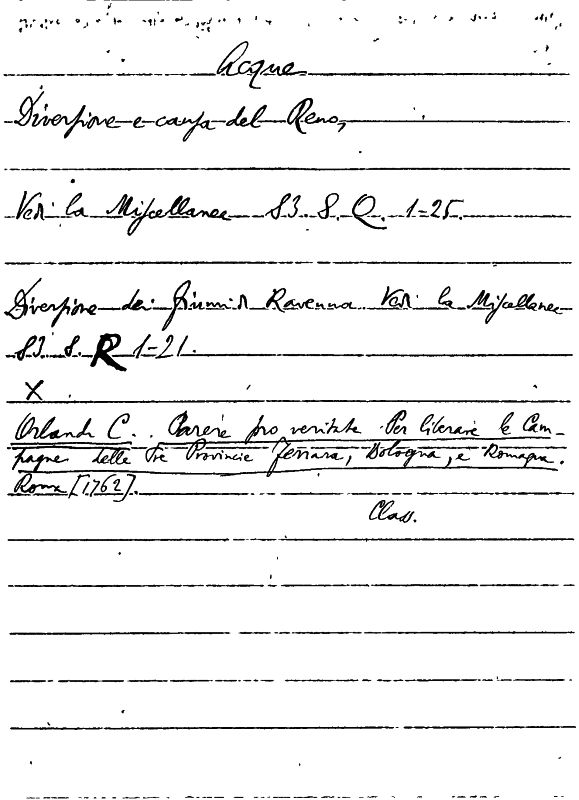 Acque
Diversione e causa del Reno,
Vedi la Miscellanea 83. 8. Q. 1-25.
Diversione dei fiumi di Ravenna Vedi la Miscellanea
83. 8. R 1-21.
X
Orlandi C.. Parere pro veritate. Per liberare le Cam-
pagne delle Tre Provincie Ferrara, Bologna, e Romagna.
Roma [1762].
Class.